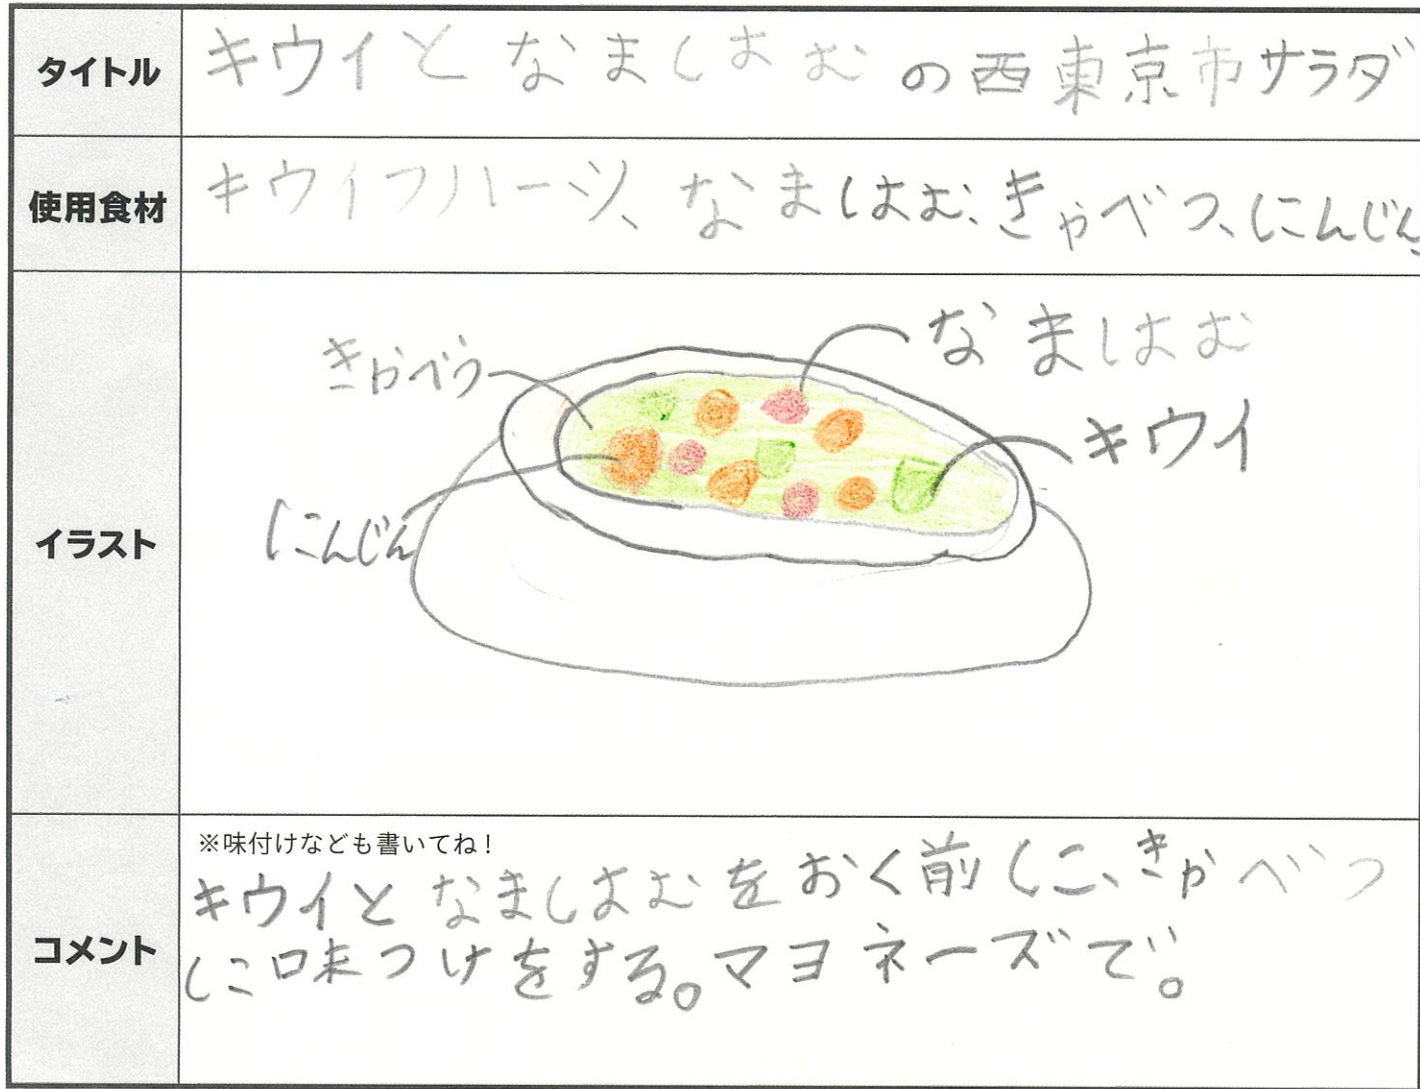 タイトル
キウイとなまはむの西東京市サラダ
使用食材
キウイフルーツ、なまはむ、きゃべつ、にんじん
イラスト
きゃべつ
なまはむ
キウイ
にんじん
コメント
※味付けなども書いてね！
キウイとなまはむをおく前に、きゃべつ
に味つけをする。マヨネーズで。